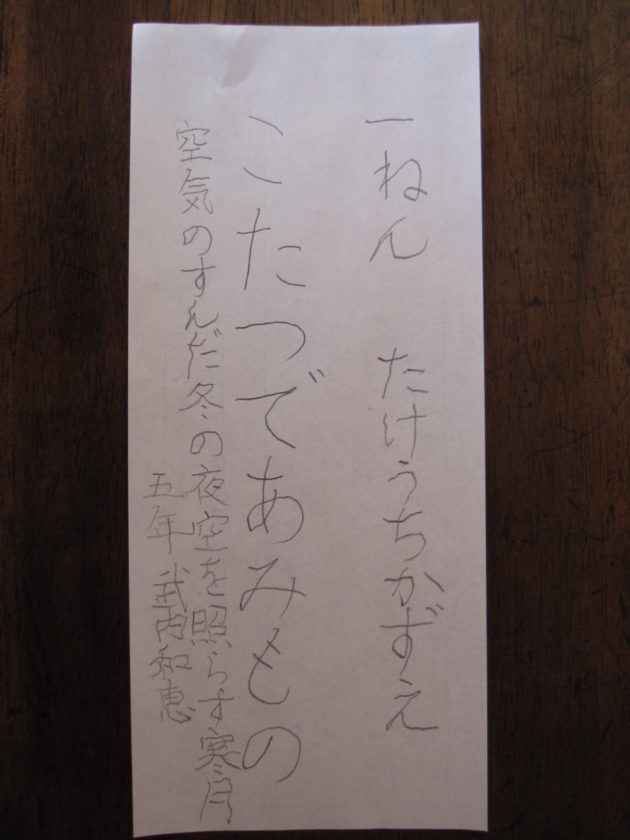 一ねん　たけうちかずえ
こたつであみもの
空気のすんだ冬の夜空を照らす寒月
五年 武内和恵